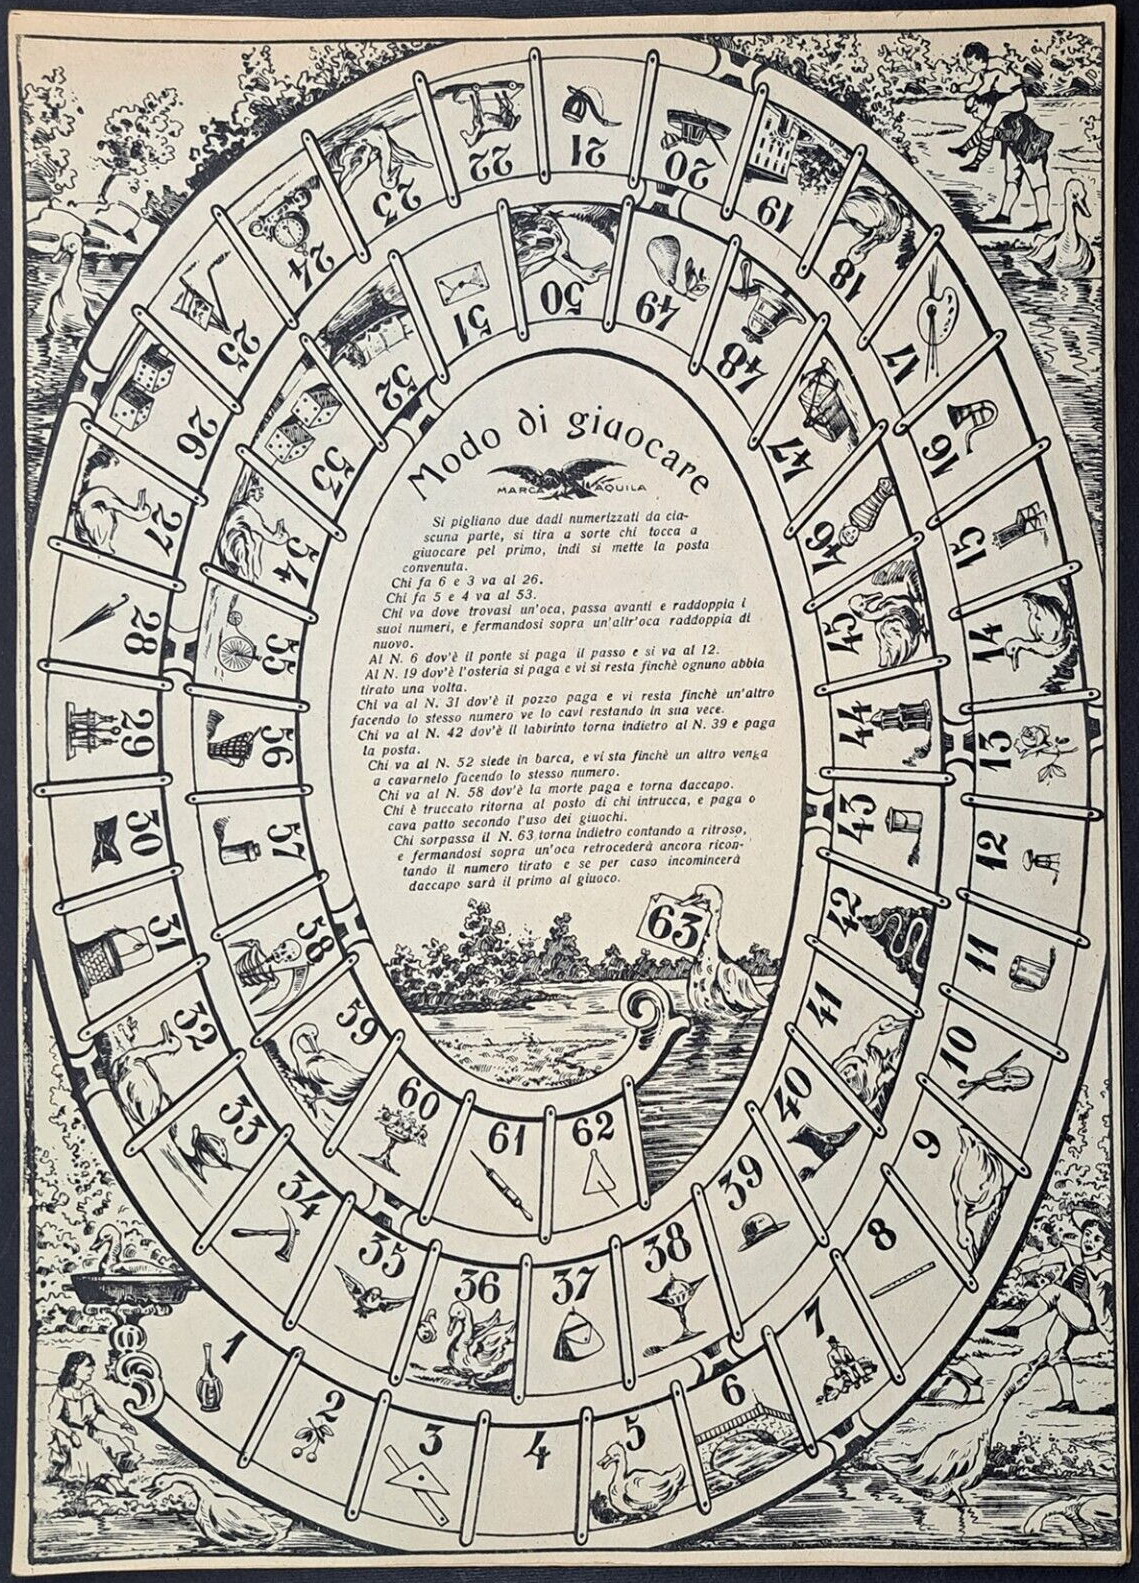 Modo di giuocare
MARCA AQUILA
Si pigliano due dadi numerizzati da cia-
scuna parte, si tira a sorte chi tocca a
giuocare pel primo, indi si mette la posta
convenuta.
Chi fa 6 e 3 va al 26.
Chi fa 5 e 4 va al 53.
Chi va dove trovasi un'oca, passa avanti e raddoppia i
suoi numeri, e fermandosi sopra un'altr'oca raddoppia di
nuovo.
Al N. 6 dov'è il ponte si paga il passo e si va al 12.
Al N. 19 dov'è l'osteria si paga e vi si resta finchè ognuno abbia
tirato una volta.
Chi va al N. 31 dov'è il pozzo paga e vi resta finchè un'altro
facendo lo stesso numero ve lo cavi restando in sua vece.
Chi va al N. 42 dov'è il labirinto torna indietro al N. 39 e paga
la posta.
Chi va al N. 52 siede in barca, e vi sta finchè un altro venga
a cavarnelo facendo lo stesso numero.
Chi va al N. 58 dov'è la morte paga e torna daccapo.
Chi è truccato ritorna al posto di chi intrucca, e paga o
cava patto secondo l'uso dei giuochi.
Chi sorpassa il N. 63 torna indietro contando a ritroso,
e fermandosi sopra un'oca retrocederà ancora ricon-
tando il numero tirato e se per caso incomincerà
daccapo sarà il primo al giuoco.
1
2
3
4
5
6
7
8
9
10
11
12
13
14
15
16
17
18
19
20
21
22
23
24
25
26
27
28
29
30
31
32
33
34
35
36
37
38
39
40
41
42
43
44
45
46
47
48
49
50
51
52
53
54
55
56
57
58
59
60
61
62
63